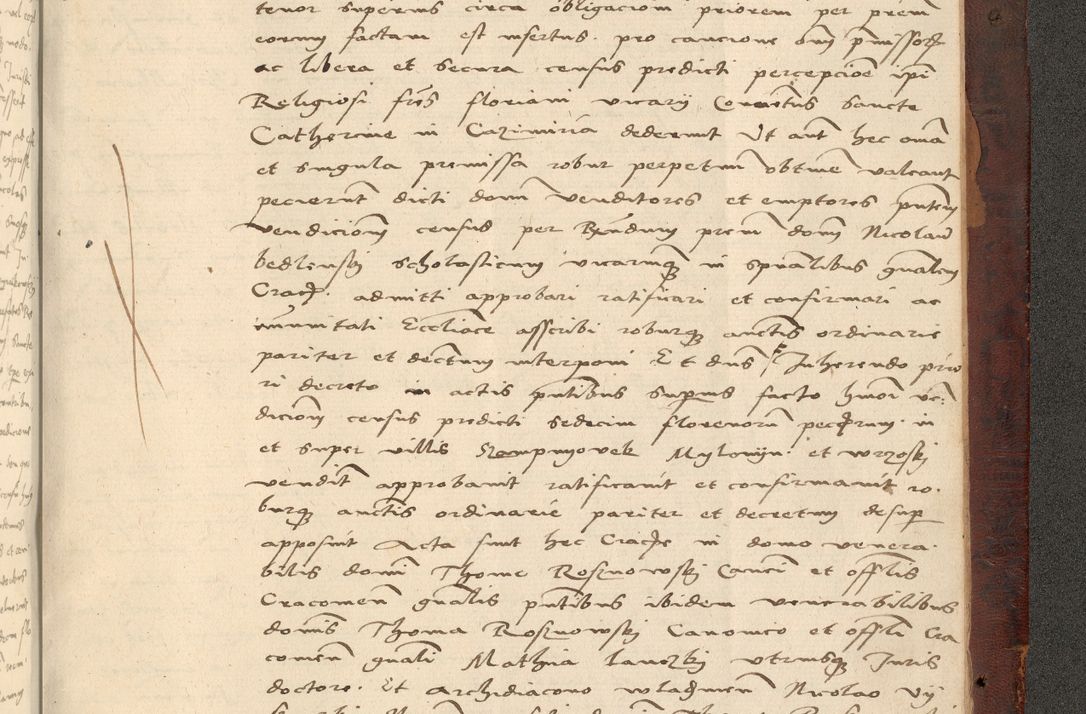 tenor superius circa obligaciom priorem per prem
eorum factam est insertus. pro caucione om pmissorum
ac libera et secura census predicti percepcioe ipi
Religiosi fres floriani vicarij Conventus sancte
Catherine in Cazimiria dederunt Ut aut hec oma
et singula premissa robur perpetuum obtine valeant
pecierunt dicti domi venditores et emptores pntem
vendiciom census per Rndum prem dom Nicolau
bedlenski scholasticum vicariumq in spualibus gnalem
Crac. admitti approbari ratificari et confirmari ac
immunitati Eccliace asscribi roburq auctis ordinarie
pariter et decretum interponi Et dns Inherendo prio
ri decreto in actis pntibus superius facto hmoi ven
diciom census predicti sedecim florenorum pecrum in
et super villis Szempnyovek Mylonijn et wrzoski
vendit approbavit ratificavit et confirmavit ro.
burq auctis ordinarie pariter et decretum desuper
apposuit Acta sunt hec Cracie in domo venera.
bilis domi Thome Rosznowski Canci et offlis
Cracomen gnalis pntibus ibidem venerabilibus
domis Thoma Rosznowski Canonico et offli Cra
comen gnali Mathia lanczki utriusq Juris
doctore. Et Archidiacono wladmen Nicolao Vij